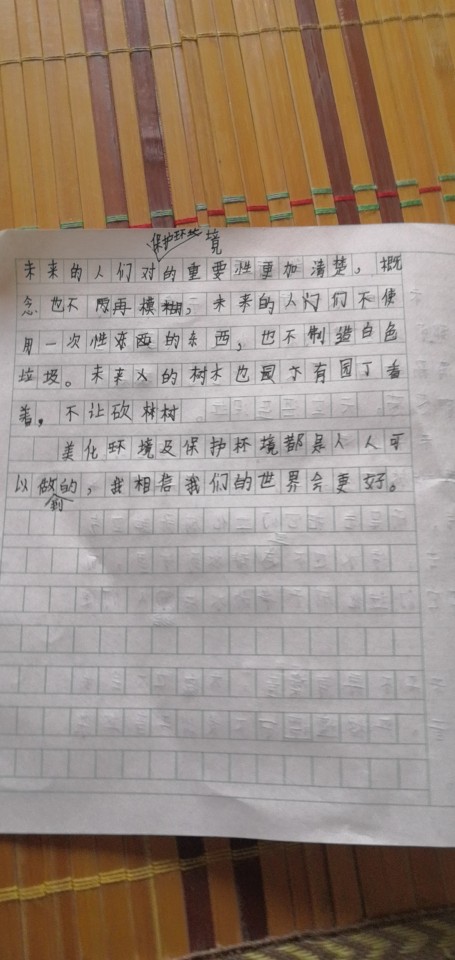 保护环境
未来的人们对的重要性更加清楚，概
念也不再模糊，未来的人们们不使
用一次性东西的东西，也不制造白色
垃圾。未来的树木也有园丁看
着，不让砍树
美化环境及保护环境都是人人可
以做的，我相信我们的世界会更好。
到